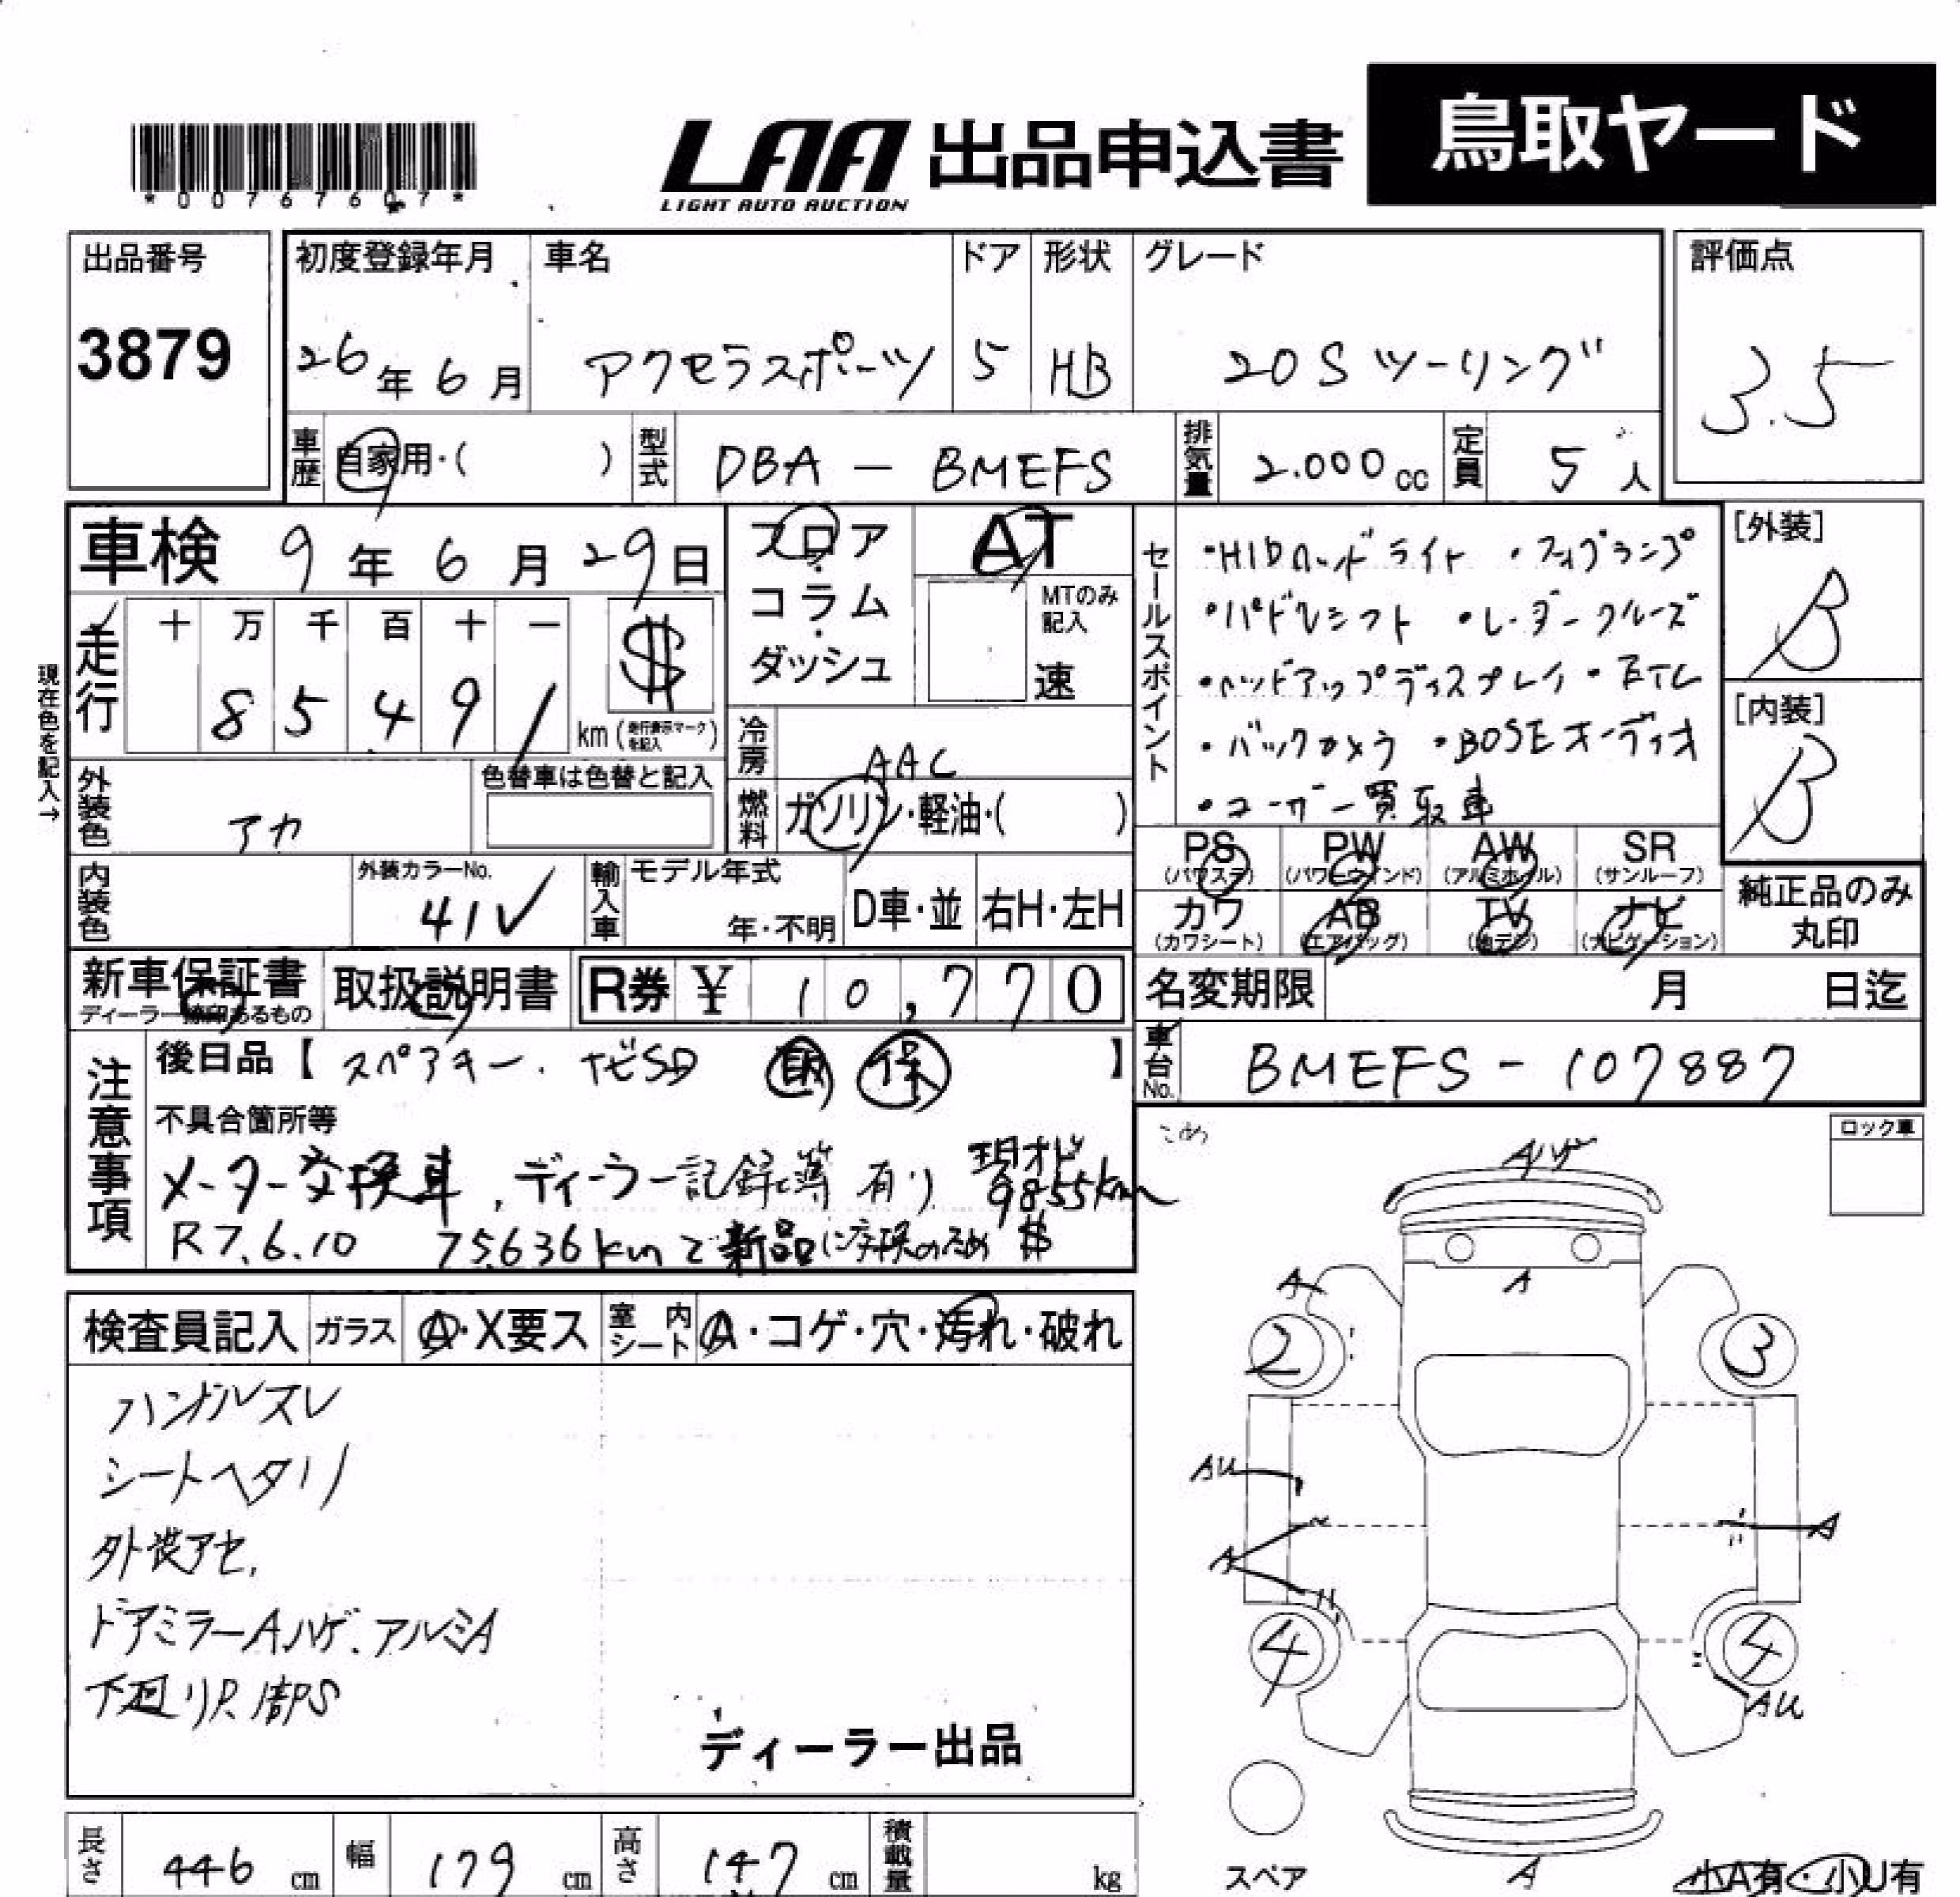 *0076760７*
LAA 出品申込書 鳥取ヤード
LIGHT AUTO AUCTION
出品番号 初度登録年月 車名 ドア 形状 グレード 評価点
3879 26年6月 アクセラスポーツ 5 HB 20Sツーリング 3.5
車歴 自家用・( ) 型式 DBA - BMEFS 排気量 2.000cc 定員 5人
車検 9年6月29日
フロア・コラム・ダッシュ
AT
MTのみ記入
速
セールスポイント
・HIDヘッドライト ・フォグランプ
・パドルシフト ・レーダークルーズ
・ヘッドアップディスプレイ ・ETC
・バックカメラ ・BOSEオーディオ
・ユーザー買取車
[外装]
B
[内装]
B
現在色を記入→
走行 十 万 千 百 十 一
8 5 4 9 1 $
km(走行表示マークを記入)
冷房 AAC
外装色 アカ 色替車は色替と記入
燃料 ガソリン・軽油・( )
PS(パワステ) PW(パワーウインド) AW(アルミホイル) SR(サンルーフ)
カワ(カワシート) AB(エアバッグ) TV(地デジ) ナビ(ナビゲーション)
純正品のみ丸印
内装色 外装カラーNo. 41V 輸入車 モデル年式 年・不明 D車・並 右H・左H
新車保証書 ディーラー捺印あるもの 取扱説明書 R券 ¥ 10,770
名変期限 月 日迄
車台No. BMEFS - 107887
注意事項
後日品【 スペアキー、ナビSD 取 保 】
不具合箇所等
メーター交換車、ディーラー記録簿有り 現オド 9855km
R7.6.10 75636kmで新品に交換のため $
ロック車
検査員記入 ガラス A・X要ス 室内シート A・コゲ・穴・汚れ・破れ
ハンドルスレ
シートヘタリ
外装アセ,
ドアミラーAハゲ、アルミA
下廻りP.1部S
ディーラー出品
Aハゲ
A
A
2 3
AU
A
A
4 4
AU
A
スペア
小A有・小U有
長さ 446cm 幅 179cm 高さ 147cm 積載量 kg